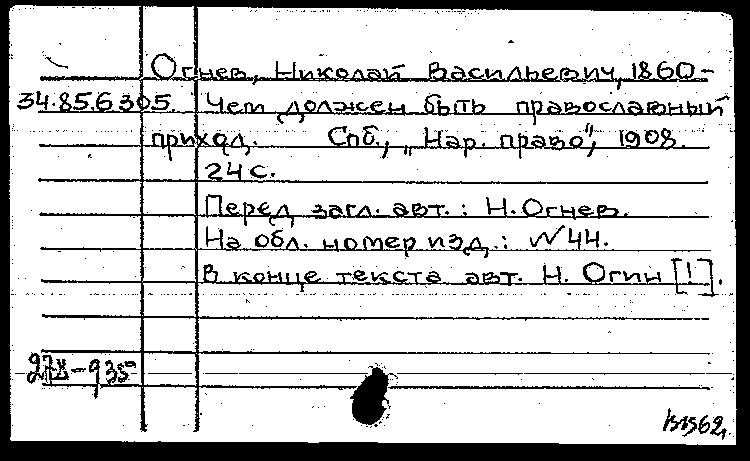 Огнев, Николай Васильевич, 1860-
34.85.6305. Чем должен быть православный
приход. Спб., „Нар. право“, 1908.
24 с.
Перед загл. авт.: Н. Огнев.
На обл. номер изд.: №44.
В конце текста авт. Н. Огин [!].
-935